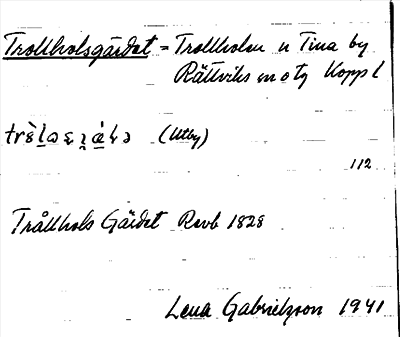 Trollholsgärdet = Trollholen u Tina by
Rättviks sn o tg Kopp l
(Utby)
112
Trållhols Gärdet Revb 1828
Lena Gabrielsson 1941